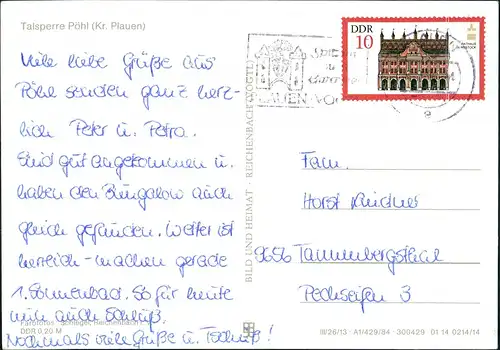 Talsperre Pöhl (Kr. Plauen)
Viele liebe Grüße aus
Pöhl senden ganz herz-
lich Peter u. Petra.
Sind gut angekommen u.
haben den Bungalow auch
gleich gefunden. Wetter ist
herrlich – machen gerade
1. Sonnenbad. So für heute
nun auch Schluß.
Nochmals viele Grüße u. Tschüß!
Reichenbach
DDR 0,20 M
BILD UND HEIMAT · REICHENBACH (VOGTL)
DDR
10
RATHAUS
ROSTOCK
PLAUEN
Fam.
Horst
9656 Tannenbergsthal
Pechseifen 3
III/26/13 · A1/429/84 · 300429 01 14 0214/14